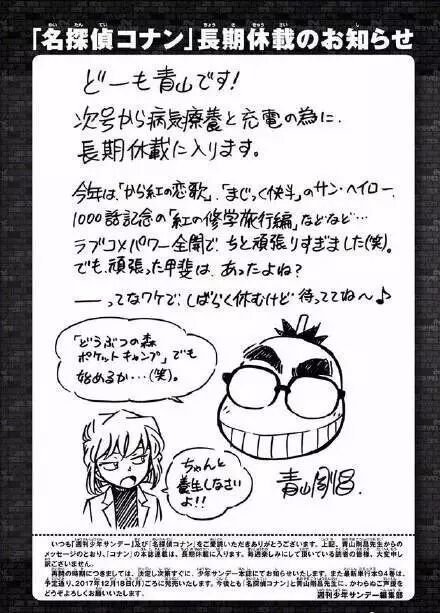 「名探偵コナン」長期休載のお知らせ
どーも青山です!
次号から病気療養と充電の為に、
長期休載に入ります。
今年は、「から紅の恋歌」、「まじっく快斗」のサン・ヘイロー、
1000話記念の「紅の修学旅行編」などなど…
ラブコメパワー全開で、ちと頑張りすぎました(笑)。
でも、頑張った甲斐は、あったよね?
――ってなワケで、しばらく休むけど 待っててね〜♪
「どうぶつの森
ポケットキャンプ」でも
始めるか…(笑)。
ちゃんと
養生しなさい
よ!!
青山剛昌
いつも「週刊少年サンデー」及び「名探偵コナン」をご愛読いただきありがとうございます。上記、青山剛昌先生からの
メッセージのとおり、「コナン」の本誌連載は、長期休載に入ります。毎週楽しみにして頂いている読者の皆様、大変申し
訳ございません。
再開の時期につきましては、決定し次第すぐに、少年サンデー本誌にてお知らせいたします。また最新単行本94巻は、
予定通り、2017年12月18日(月)ごろに発売いたします。今後とも「名探偵コナン」と青山剛昌先生に、かわらぬご声援を
どうぞよろしくお願いいたします。
週刊少年サンデー編集部